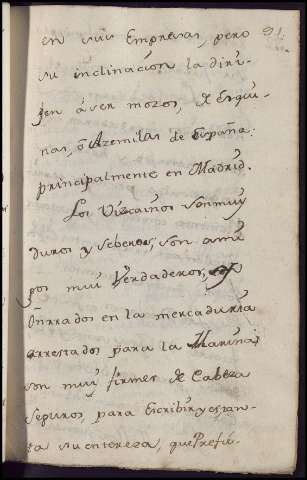 91.
en sus Empresas, pero
su inclinacion la diri-
jen á ser mozos, de esqui-
nas, ó Azemilas de España
principalmente en Madrid.
Los Vizcainos son muy
duros y seberos, son ami
gos muy verdaderos,
onrrados en la mercaduria
arrestados para la Marina,
son muy firmes de Cabeza
seguros, para escribir y es tan-
ta su entereza, que Prefie-